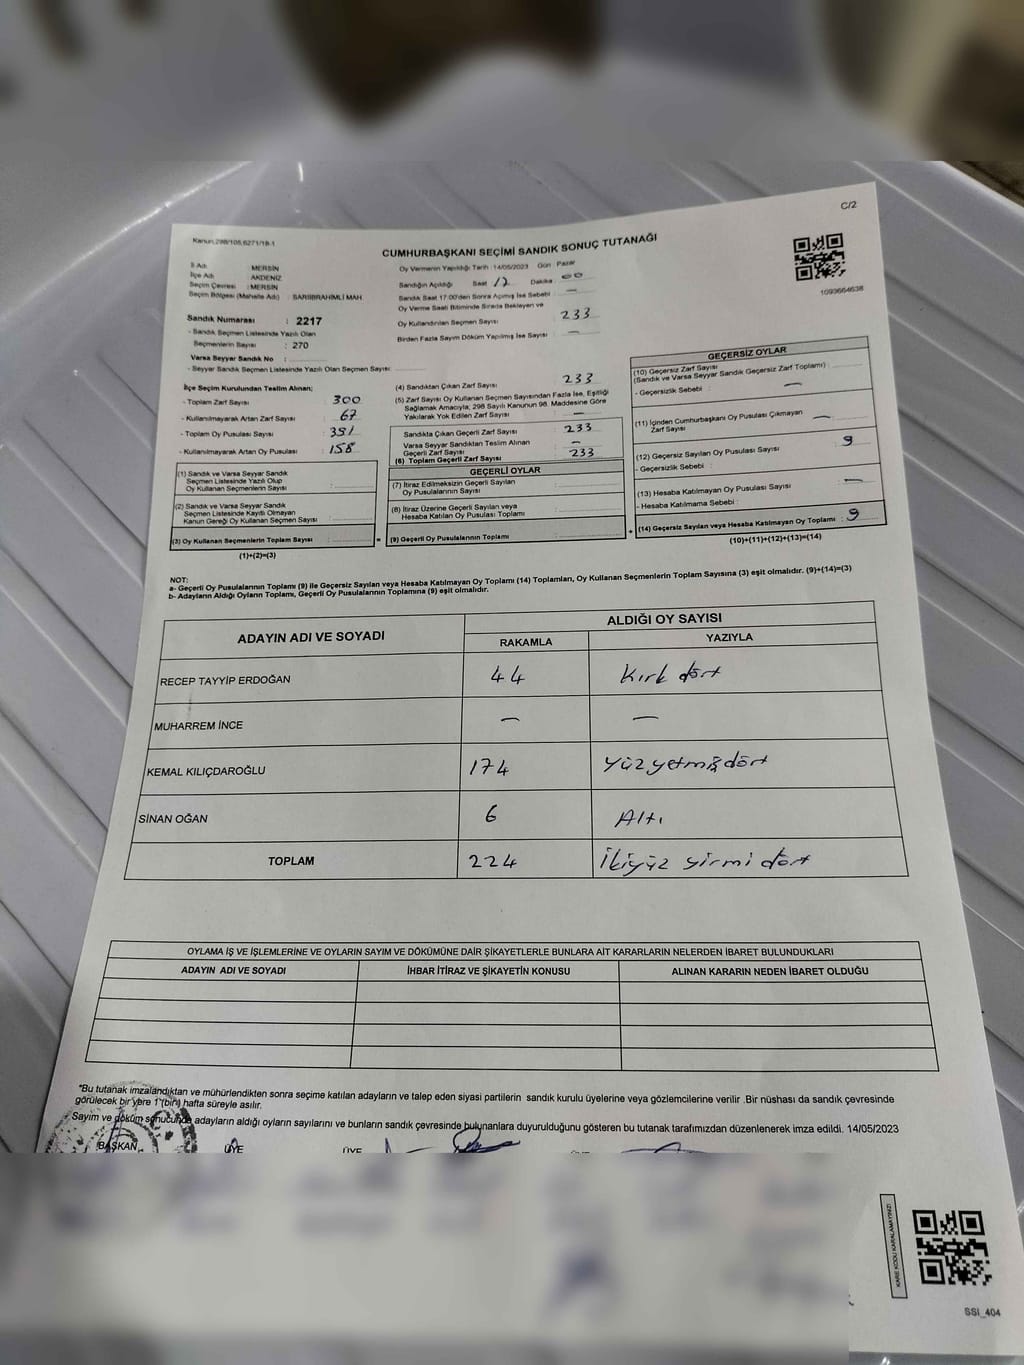 C/2
Kanun,298/105,6271/18-1
CUMHURBAŞKANI SEÇİMİ SANDIK SONUÇ TUTANAĞI
1093664638
İl Adı : MERSİN
İlçe Adı : AKDENİZ
Seçim Çevresi : MERSİN
Seçim Bölgesi (Mahalle Adı) : SARIİBRAHİMLİ MAH.
Sandık Numarası : 2217
- Sandık Seçmen Listesinde Yazılı Olan
Seçmenlerin Sayısı : 270
Varsa Seyyar Sandık No :
- Seyyar Sandık Seçmen Listesinde Yazılı Olan Seçmen Sayısı:
Oy Vermenin Yapıldığı Tarih :14/05/2023 Gün : Pazar
Sandığın Açıldığı Saat 17 Dakika : 00
Sandık Saat 17:00'den Sonra Açılmış İse Sebebi : —
Oy Verme Saati Bitiminde Sırada Bekleyen ve
Oy Kullandırılan Seçmen Sayısı : 233
Birden Fazla Sayım Döküm Yapılmış İse Sayısı : —
İlçe Seçim Kurulundan Teslim Alınan;
- Toplam Zarf Sayısı : 300
- Kullanılmayarak Artan Zarf Sayısı : 67
- Toplam Oy Pusulası Sayısı : 391
- Kullanılmayarak Artan Oy Pusulası : 158
(1) Sandık ve Varsa Seyyar Sandık
Seçmen Listesinde Yazılı Olup
Oy Kullanan Seçmenlerin Sayısı :
(2) Sandık ve Varsa Seyyar Sandık
Seçmen Listesinde Kayıtlı Olmayan
Kanun Gereği Oy Kullanan Seçmen Sayısı :
(3) Oy Kullanan Seçmenlerin Toplam Sayısı :
(1)+(2)=(3)
(4) Sandıktan Çıkan Zarf Sayısı : 233
(5) Zarf Sayısı Oy Kullanan Seçmen Sayısından Fazla İse, Eşitliği
Sağlamak Amacıyla; 298 Sayılı Kanunun 98. Maddesine Göre
Yakılarak Yok Edilen Zarf Sayısı : —
Sandıkta Çıkan Geçerli Zarf Sayısı : 233
Varsa Seyyar Sandıktan Teslim Alınan
Geçerli Zarf Sayısı : —
(6) Toplam Geçerli Zarf Sayısı : 233
GEÇERLİ OYLAR
(7) İtiraz Edilmeksizin Geçerli Sayılan
Oy Pusulalarının Sayısı :
(8) İtiraz Üzerine Geçerli Sayılan veya
Hesaba Katılan Oy Pusulası Toplamı :
= (9) Geçerli Oy Pusulalarının Toplamı :
GEÇERSİZ OYLAR
(10) Geçersiz Zarf Sayısı
(Sandık ve Varsa Seyyar Sandık Geçersiz Zarf Toplamı) :
- Geçersizlik Sebebi : —
(11) İçinden Cumhurbaşkanı Oy Pusulası Çıkmayan
Zarf Sayısı : —
(12) Geçersiz Sayılan Oy Pusulası Sayısı : 9
- Geçersizlik Sebebi :
(13) Hesaba Katılmayan Oy Pusulası Sayısı : —
- Hesaba Katılmama Sebebi :
+ (14) Geçersiz Sayılan veya Hesaba Katılmayan Oy Toplamı : 9
(10)+(11)+(12)+(13)=(14)
NOT:
a- Geçerli Oy Pusulalarının Toplamı (9) ile Geçersiz Sayılan veya Hesaba Katılmayan Oy Toplamı (14) Toplamları, Oy Kullanan Seçmenlerin Toplam Sayısına (3) eşit olmalıdır. (9)+(14)=(3)
b- Adayların Aldığı Oyların Toplamı, Geçerli Oy Pusulalarının Toplamına (9) eşit olmalıdır.
ADAYIN ADI VE SOYADI
ALDIĞI OY SAYISI
RAKAMLA YAZIYLA
RECEP TAYYİP ERDOĞAN 44 Kırk dört
MUHARREM İNCE — —
KEMAL KILIÇDAROĞLU 174 Yüz yetmiş dört
SİNAN OĞAN 6 Altı
TOPLAM 224 İkiyüz yirmi dört
OYLAMA İŞ VE İŞLEMLERİNE VE OYLARIN SAYIM VE DÖKÜMÜNE DAİR ŞİKAYETLERLE BUNLARA AİT KARARLARIN NELERDEN İBARET BULUNDUKLARI
ADAYIN ADI VE SOYADI İHBAR İTİRAZ VE ŞİKAYETİN KONUSU ALINAN KARARIN NEDEN İBARET OLDUĞU
*Bu tutanak imzalandıktan ve mühürlendikten sonra seçime katılan adayların ve talep eden siyasi partilerin sandık kurulu üyelerine veya gözlemcilerine verilir .Bir nüshası da sandık çevresinde
görülecek bir yere 1 (bir) hafta süreyle asılır.
Sayım ve döküm sonucunda adayların aldığı oyların sayılarını ve bunların sandık çevresinde bulunanlara duyurulduğunu gösteren bu tutanak tarafımızdan düzenlenerek imza edildi. 14/05/2023
BAŞKAN ÜYE ÜYE
KARE KODU KARALAMAYINIZ!
SSI_404